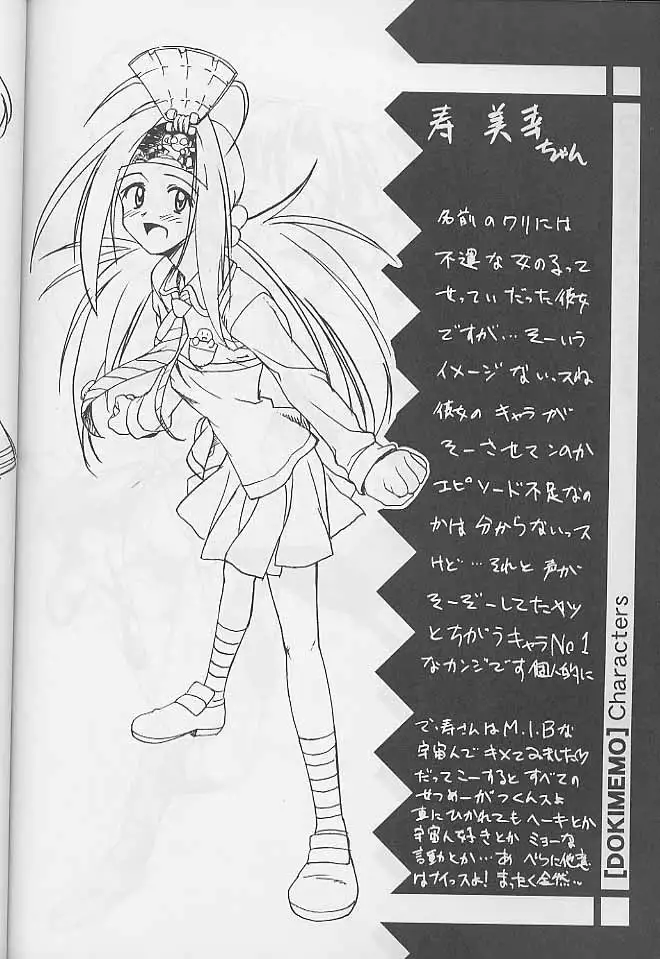 寿 美幸
ちゃん
名前のワリには
不運な女のコって
せっていだった彼女
ですが…そーいう
イメージないっスね
彼女のキャラが
そーさせてンのか
エピソード不足なの
かは分からないっス
けど…それと声が
そーぞーしてたヤツ
とちがうキャラNo1
なカンジです個人的に
で、寿さんはM.I.Bな
宇宙人でキメてみましたッ
だってこーするとすべての
せつめーがつくんスよ
車にひかれてもヘーキとか
宇宙人好きとかミョーな
言動とか…あ べつに他意
はナイっスよ! まったく全然…
[DOKIMEMO] Characters